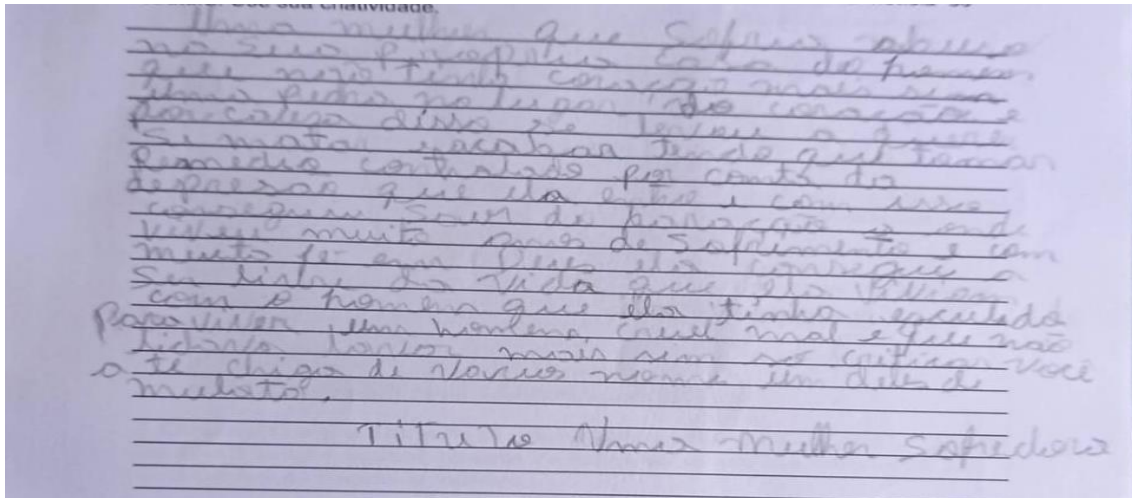 sua criatividade.
Uma mulher que sofreu abuso
no seu propiu casa do homem
que não tinha coração mais sim
uma pedra no lugar do coração e
por causa disso se tentou a
si matar e acabou tendo que tomar
Remedio controlado por conta da
depresão que ela e com isso
conseguiu sair da
viveu muito anos de sofrimento e com
muito fé em Deus ela conseguiu a
ser livre da vida que ela
com o homem que ela tinha esculido
para viver um homem cruel mal e que não
mais sim so criticar você
a te chiga de varios nome um deles de
mulato.
Titulo Uma mulher sofredora